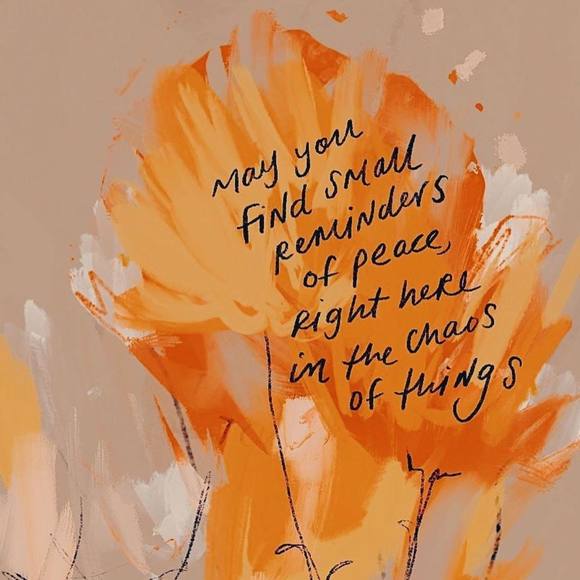 May you
find small
reminders
of peace,
right here
in the chaos
of things